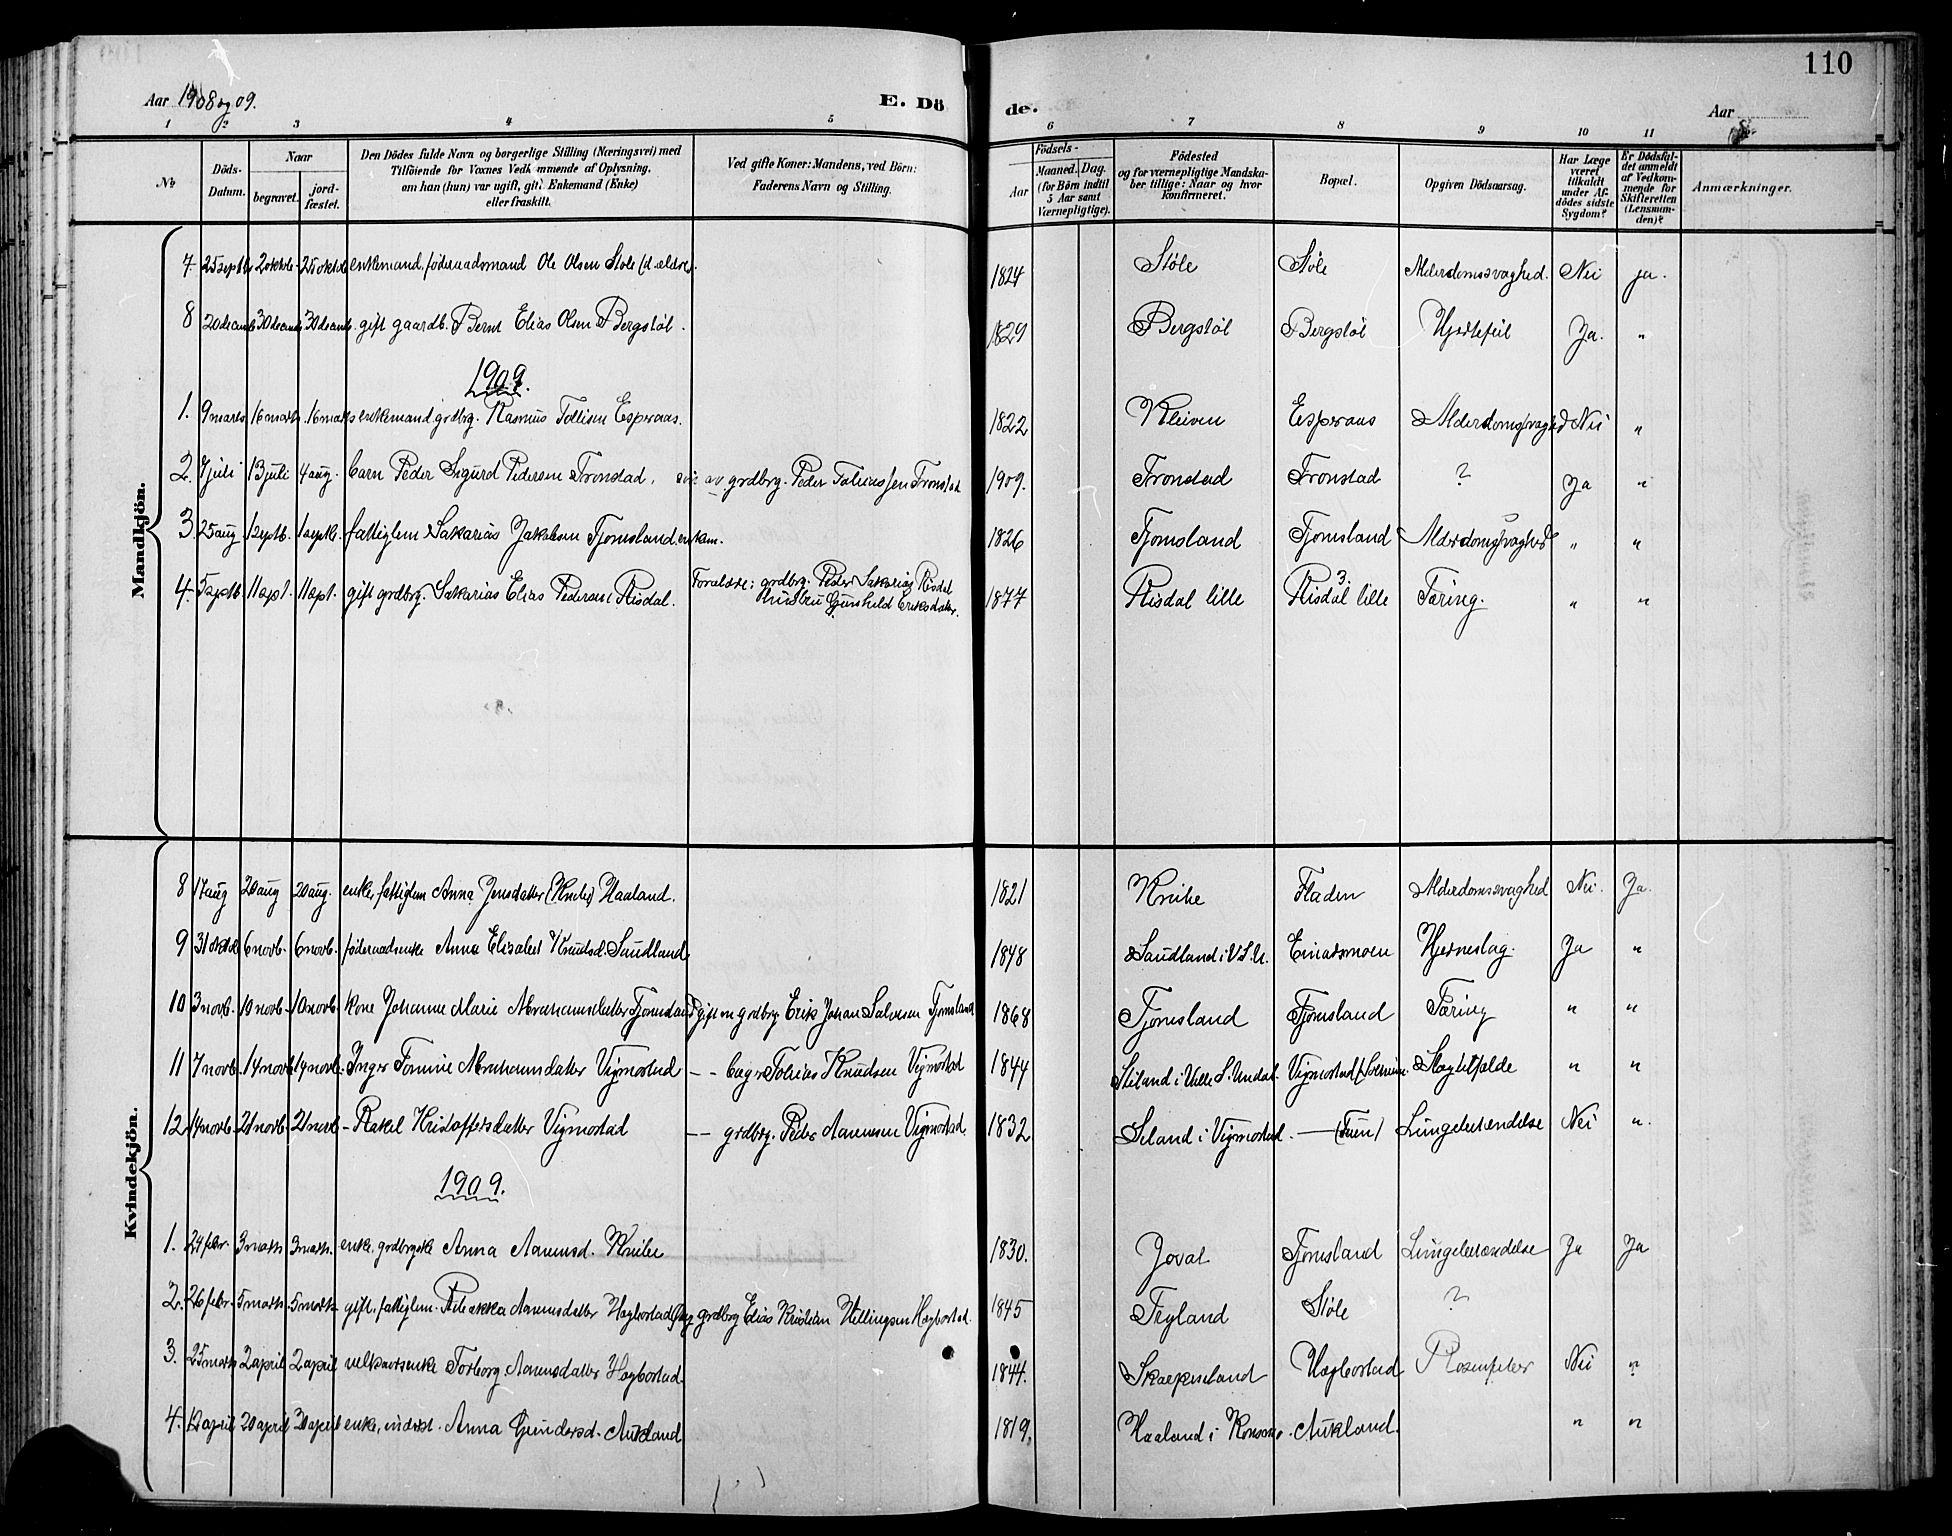 110
Aar 1908 og 09.
E. Dö
de.
Aar
1 2 3 4 5 6 7 8 9 10 11
No
Döds-Datum.
Naar
begravet.
jord-fæstet.
Den Dödes fulde Navn og borgerlige Stilling (Næringsvei) med
Tilföiende for Voxnes Vedkommende af Oplysning,
om han (hun) var ugift, gift, Enkemand (Enke)
eller fraskilt.
Ved gifte Koner: Mandens, ved Börn:
Faderens Navn og Stilling.
Födsels-
Aar
Maaned. Dag.
(for Börn indtil
5 Aar samt
Værnepligtige).
Födested
og for værnepligtige Mandska-
ber tillige: Naar og hvor
konfirmeret.
Bopæl.
Opgiven Dödsaarsag.
Har Læge
været
tilkaldt
under Af-
dödes sidste
Sygdom?
Er Dödsfal-
det anmeldt
af Vedkom-
mende for
Skifteretten
(Lensman-
den)?
Anmærkninger.
Mandkjön.
7. 25 septb 2 oktob. 25 oktob enkemand, föderaadsmand Ole Olsen Stöle (d. ældre). 1824 Stöle Stöle Alderdomssvaghed. Nei ja.
8 20 decemb 30 decemb 30 decemb. gift gaardb. Bernt Elias Olsen Bergstöl. 1829 Bergstöl Bergstöl Hjertefeil Ja. "
1909.
1. 9 marts 16 marts 16 marts enkemand grdbrg. Rasmus Tollisen Esperaas. 1822 Kleiven Esperaas Alderdomssvaghed Nei "
2. 7 juli 13 juli 4 aug. barn Peder Sigurd Pedersen Tronstad, av grdbrg. Peder Tobiassen Tronstad 1909. Tronstad Tronstad ? Ja "
3. 25 aug 1 septb. 1 septb. fattiglem Sakarias Jakobsen Fjomsland, enkem. 1826 Fjomsland Fjomsland Alderdomssvaghed " "
4. 5 septb. 11 sept. 11 sept. gift grdbrg. Sakarias Elias Pedersen Risdal. Forældre: grdbrg. Peder Sakarias Risdal
Hustru Gunhild Eriksdatter. 1877 Risdal lille Risdal lille Tæring. " "
Kvindekjön.
8 17 aug 20 aug 20 aug. enke, fattiglem Anna Jensdatter (Knibe) Haaland. 1821 Knibe Fladen Alderdomssvaghed Nei. Ja.
9 31 oktob 6 novb. 6 novb. föderaadsenke Anna Elisabet Knudsd. Saudland 1848 Saudland i V.S.U. Einarsmoen Hjerneslag. Ja "
10 3 novb. 10 novb. 10 novb. kone Johanne Marie Abrahamsdatter Fjomsland gift m grdbrg. Erik Johan Salvesen Fjomsland 1868 Fjomsland Fjomsland Tæring " "
11 7 novb. 14 novb 14 novb. Inger Tomine Abrahamsdatter Vigmostad - - bager Tobias Knudsen Vigmostad 1844 Stiland i Valle S. Undal. Vigmostad Slagtilfælde " "
12 14 novb. 21 novb. 21 novb - Rakel Kristoffersdatter Vigmostad - - grdbrg. Peder Aanensen Vigmostad 1832 Seland i Vigmostad. — (Tuen) Lungebetændelse Nei "
1909.
1. 24 febr. 3 marts 3 marts. enke, grdbrgske Anna Aanensd. Knibe 1830. Jovat Fjomsland Lungebetændelse Ja Ja
2. 26 febr. 5 marts. 5 marts gift, fattiglem. Rebekka Aanensdatter Hogbostad grdbrg Elias Kristian Hellingsen Hogbostad. 1845 Tryland Stöle ?
3. 25 marts 2 april 2 april enke Torborg Aanensdatter Hogbostad. 1844. Skarpeland Hogbostad Rosenfeber Nei "
4. 12 april 20 april 20 april enke, inderst Anna Gundersd. Aukland 1819. Haaland i Konsmo. Aukland. " "